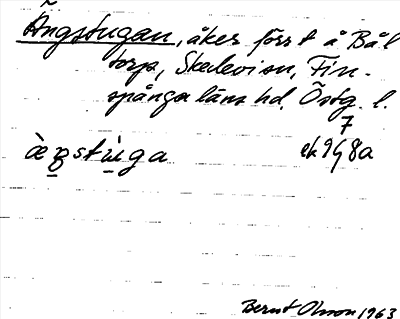 Ängstugan, åker förr t å Bål
torp, Skedevi sn, Fin-
spånga läns hd. Östg. l.
7
æ̀ŋstùga ek 9G 8a
Bernt Olsson 1963